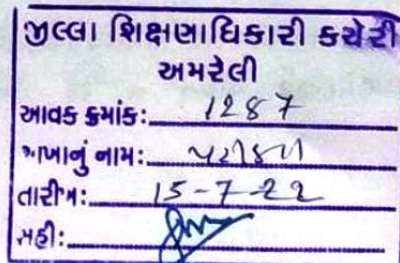 જીલ્લા શિક્ષણાધિકારી કચેરી
અમરેલી
આવક ક્રમાંક: 1287
શાખાનું નામ:
તારીખ: 15-7-22
સહી: